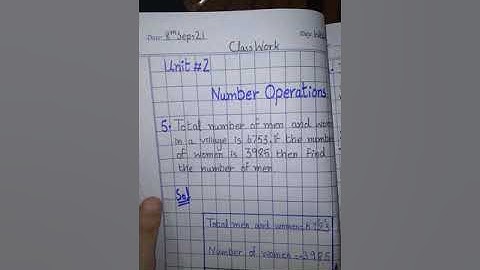 Date: 8th Sep, 21
Class Work
Unit #2
Number Operations
5. Total number of men and
in a village is 6753. If the number
of women is 3985 then find
the number of men
Sol
Total men and women
Number of women = 3985